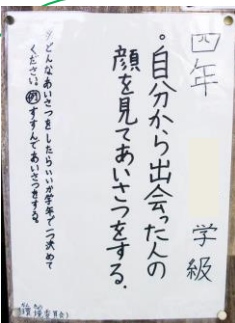 四年　学級
。自分から出会った人の
顔を見てあいさつをする。
どんなあいさつをしたらいいか学年で一つ決めて
ください。例 すすんであいさつをする。